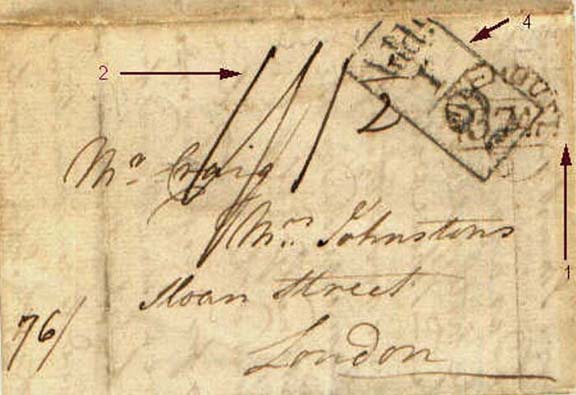 4
Add.
1
2
2
Mr Craig
Mrs Johnstons
Sloan Street
London
76/
1